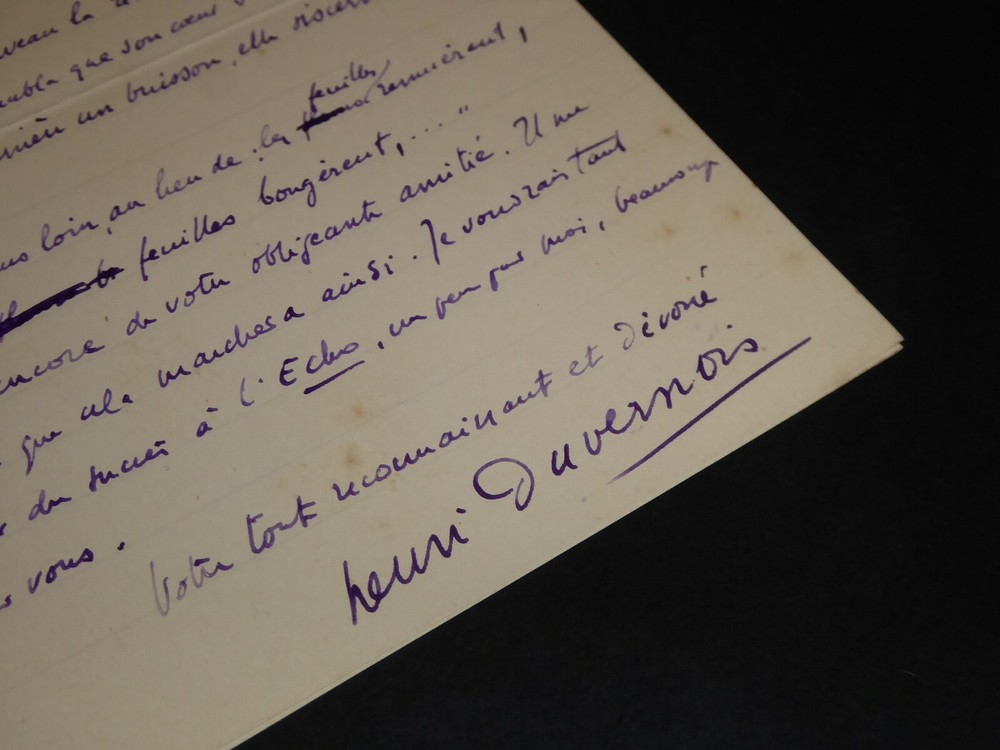 que son cœur
un buisson, elle
feuilles
loin, au lieu de : les remuèrent,
feuilles bougèrent,... "
encore de votre obligeante amitié. Il me
que cela marchera ainsi. Je voudrais tant
du succès à l'Echo, un peu par moi, beaucoup
vous.
Votre tout reconnaissant et dévoué
henri Duvernois